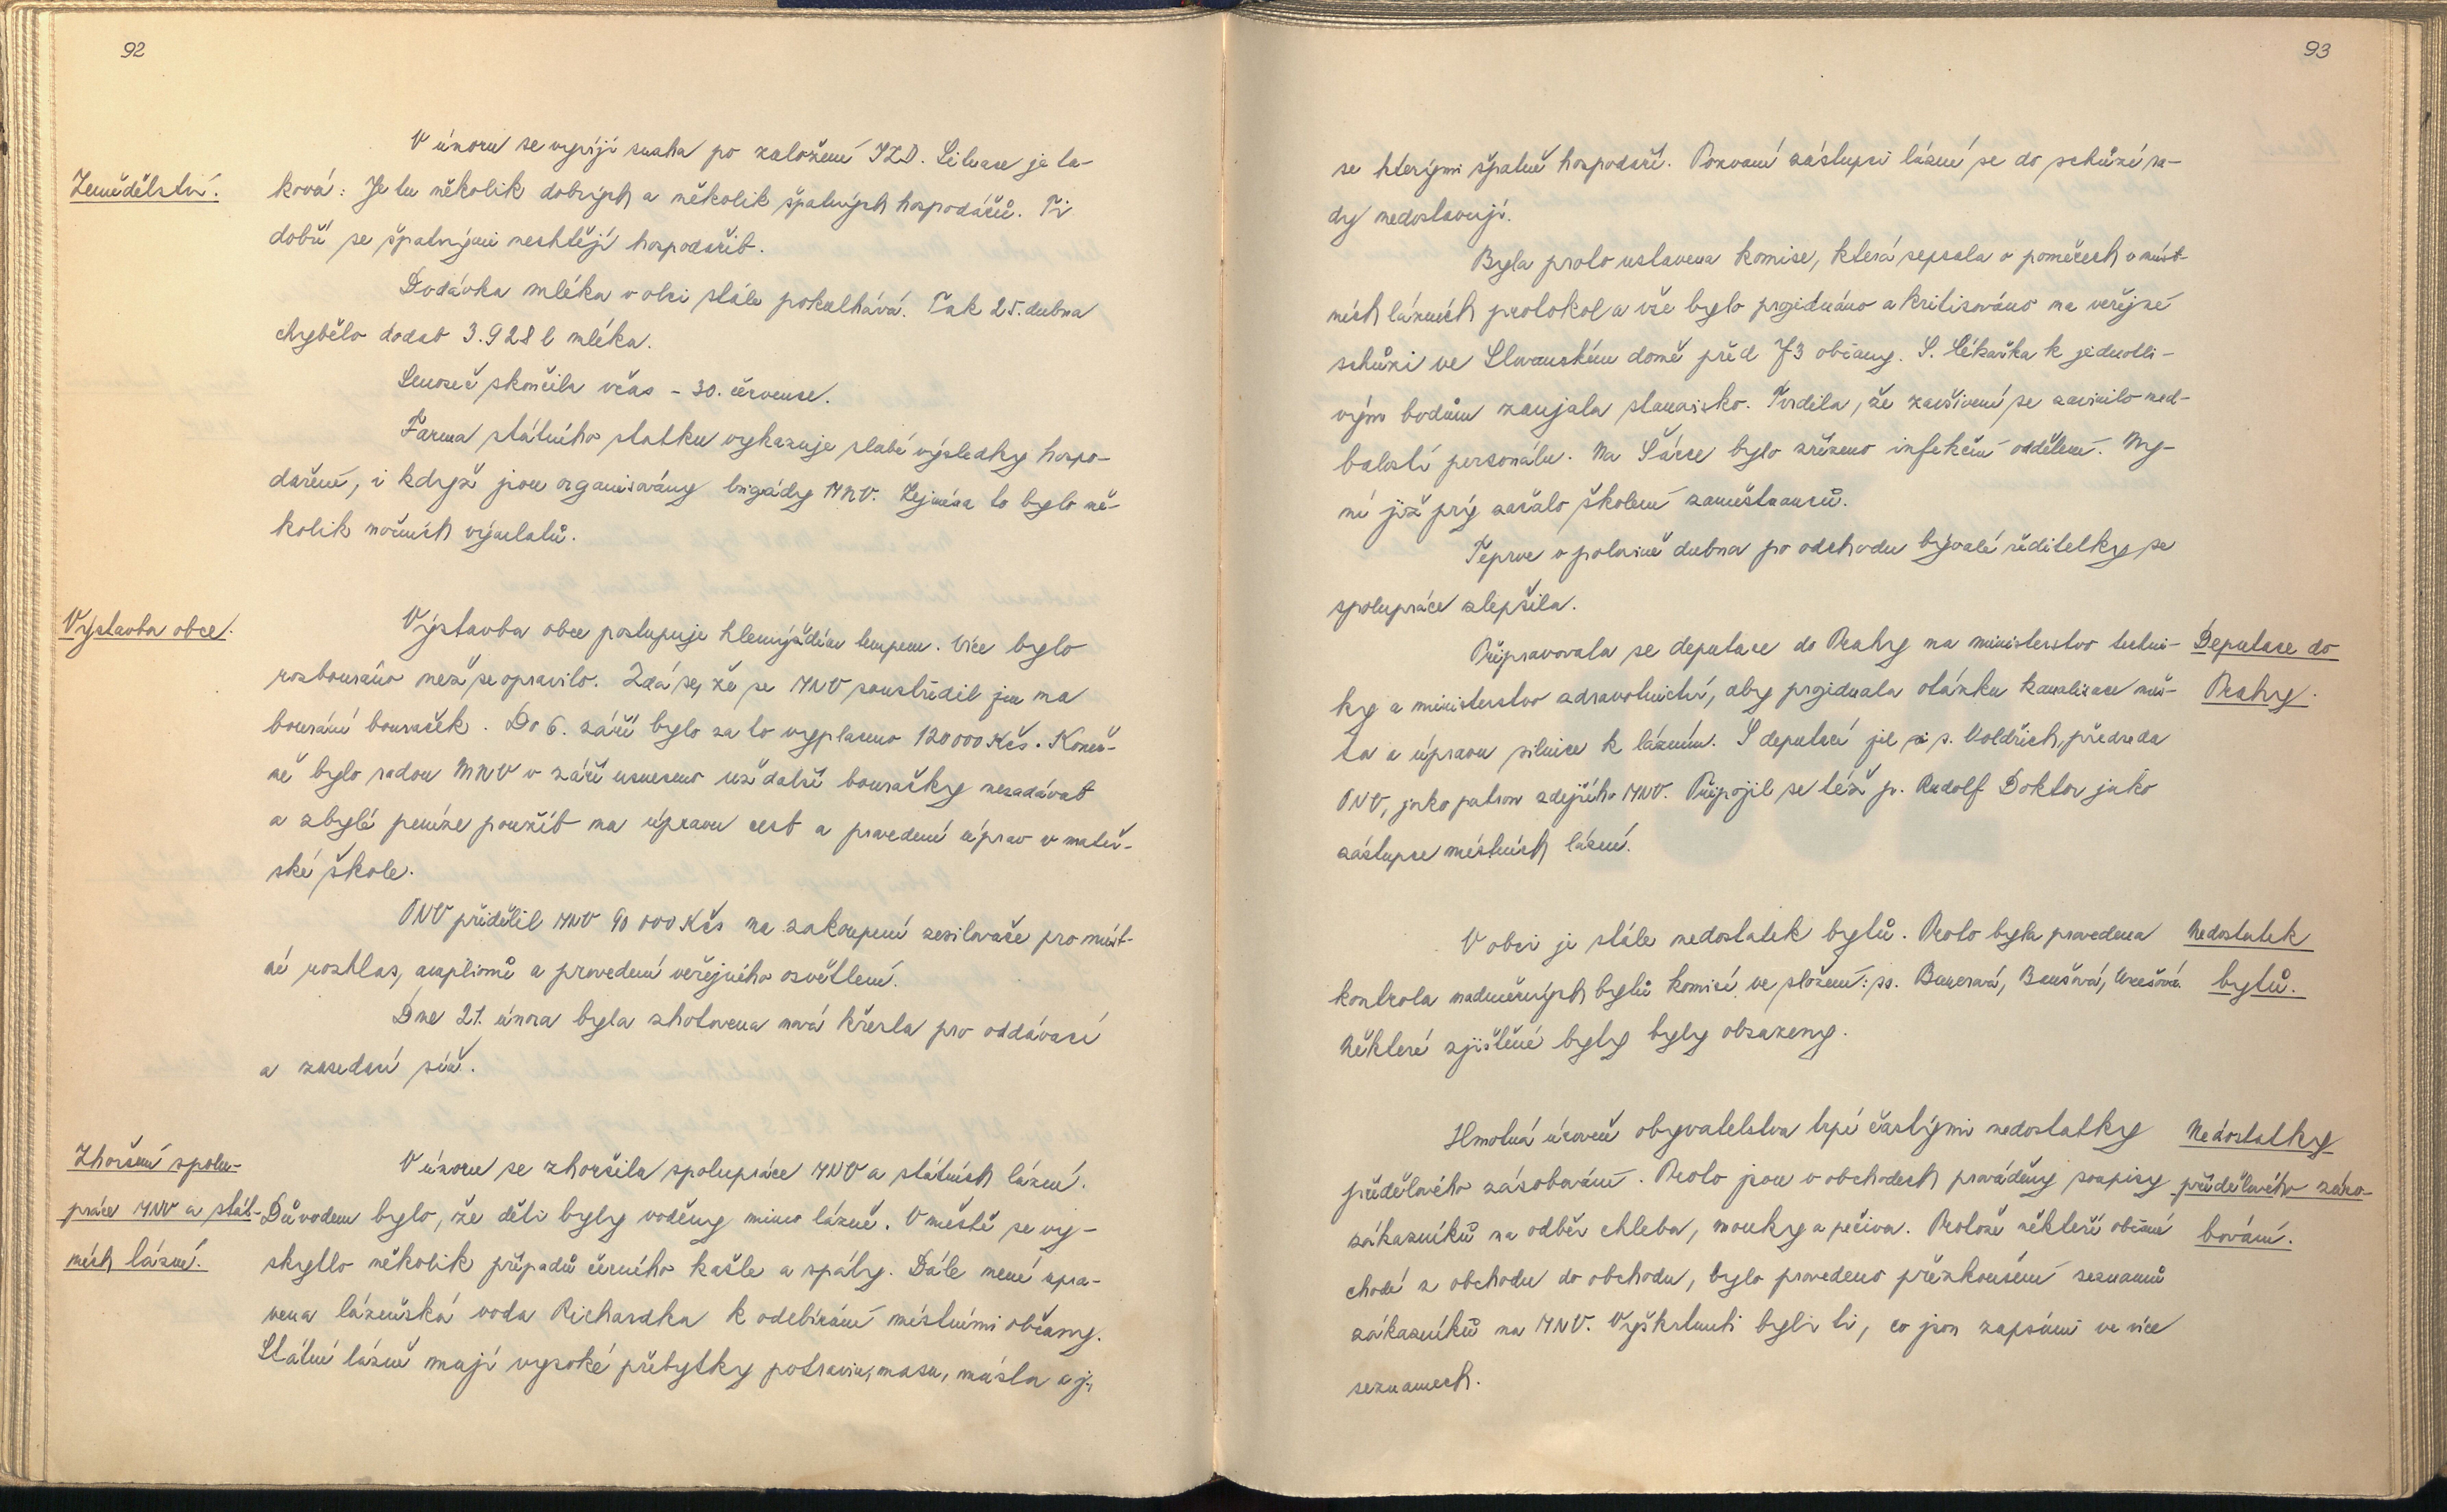 92
V únoru se vyvíjí snaha po založení JZD. Situace je ta-
Zemědělství.
ková: Je tu několik dobrých a několik špatných hospodářů. Ti
dobří se špatnými nechtějí hospodařit.
Dodávka mléka v obci stále pokulhává. Tak 25. dubna
chybělo dodat 3.928 l mléka.
Senoseč skončila včas - 30. července.
Farma státního statku vykazuje slabé výsledky hospo-
daření, i když jsou organisovány brigády MNV. Zejména to bylo ně-
kolik nočních výmlatů.
Výstavba obce.
Výstavba obce postupuje hlemýždím tempem. Více bylo
rozbouráno než se opravilo. Zdá se, že se MNV soustředil jen na
bourání bouraček. Do 6. září bylo za to vyplaceno 120 000 Kčs. Koneč-
ně bylo radou MNV v září usneseno už další bouračky nezadávat
a zbylé peníze použít na úpravu cest a provedení úprav v mateř-
ské škole.
ONV přidělil MNV 90 000 Kčs na zakoupení zesilovače pro míst-
ní rozhlas, ampliony a provedení veřejného osvětlení.
Dne 21. února byla zhotovena nová křesla pro oddávací
a zasedací síň.
Zhoršení spolu-
práce MNV a stát-
ních lázní.
V únoru se zhoršila spolupráce MNV a státních lázní.
Důvodem bylo, že děti byly voděny mimo lázně. V městě se vy-
skytlo několik případů černého kašle a spály. Dále není upra-
vena lázeňská voda Richardka k odebírání místními občany.
Státní lázně mají vysoké přebytky potravin, masa, másla a j.,
93
se kterými špatně hospodaří. Pozvaní zástupci lázní se do schůzí ra-
dy nedostavují.
Byla proto ustavena komise, která sepsala o poměrech v míst-
ních lázních protokol a vše bylo projednáno a kritisováno na veřejné
schůzi ve Slovanském domě před 73 občany. S. lékařka k jednotli-
vým bodům zaujala stanovisko. Tvrdila, že zavšivení se zavinilo ned-
balostí personálu. Na Šárce bylo zřízeno infekční oddělení. Ny-
ní již prý začalo školení zaměstnanců.
Teprve v polovině dubna po odchodu bývalé ředitelky se
spolupráce zlepšila.
Připravovala se deputace do Prahy na ministerstvo techni-
Deputace do
ky a ministerstvo zdravotnictví, aby projednala otázku kanalisace měs-
Prahy.
ta a úpravu silnice k lázním. S deputací jel s. Voldřich, předseda
ONV, jako patron zdejšího MNV. Připojil se též p. Rudolf Doktor jako
zástupce místních lázní.
V obci je stále nedostatek bytů. Proto byla provedena
Nedostatek
kontrola nadměrných bytů komisí ve složení: ss. Benešová,
bytů.
Některé zjištěné byty byly obsazeny.
Hmotná úroveň obyvatelstva trpí častými nedostatky
Nedostatky
přídělového zásobování. Proto jsou v obchodech prováděny soupisy
přídělového záso-
zákazníků na odběr chleba, mouky a pečiva. Protože někteří občané
bování.
chodí z obchodu do obchodu, bylo provedeno přezkoušení seznamů
zákazníků na MNV. Vyškrtnuti byli ti, co jsou zapsáni ve více
seznamech.